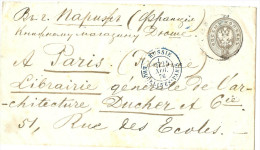 Въ г. Парижъ (Франція)
Книжному магазину Дюшé.
A Paris.
Librairie générale de l'ar-
chitecture, Ducher et Cie
51, Rue des Ecoles.